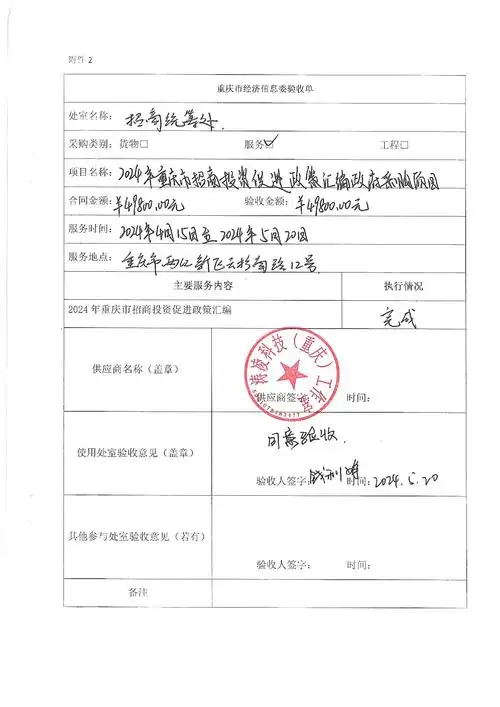 附件 2
重庆市经济信息委验收单
处室名称： 招商统筹处
采购类别：货物□ 服务☑ 工程□
项目名称：2024年重庆市招商投资促进政策汇编政府采购项目
合同金额：￥49800.00元 验收金额：￥49800.00元
服务时间：2024年4月15日至2024年5月20日
服务地点：重庆市两江新 12号
主要服务内容 执行情况
2024 年重庆市招商投资促进政策汇编 完成
供应商名称（盖章） 科技（重庆）工作室
供应商签字： 时间：
使用处室验收意见（盖章） 同意验收
验收人签字： 时间：2024.5.20
其他参与处室验收意见（若有）
验收人签字： 时间：
备注